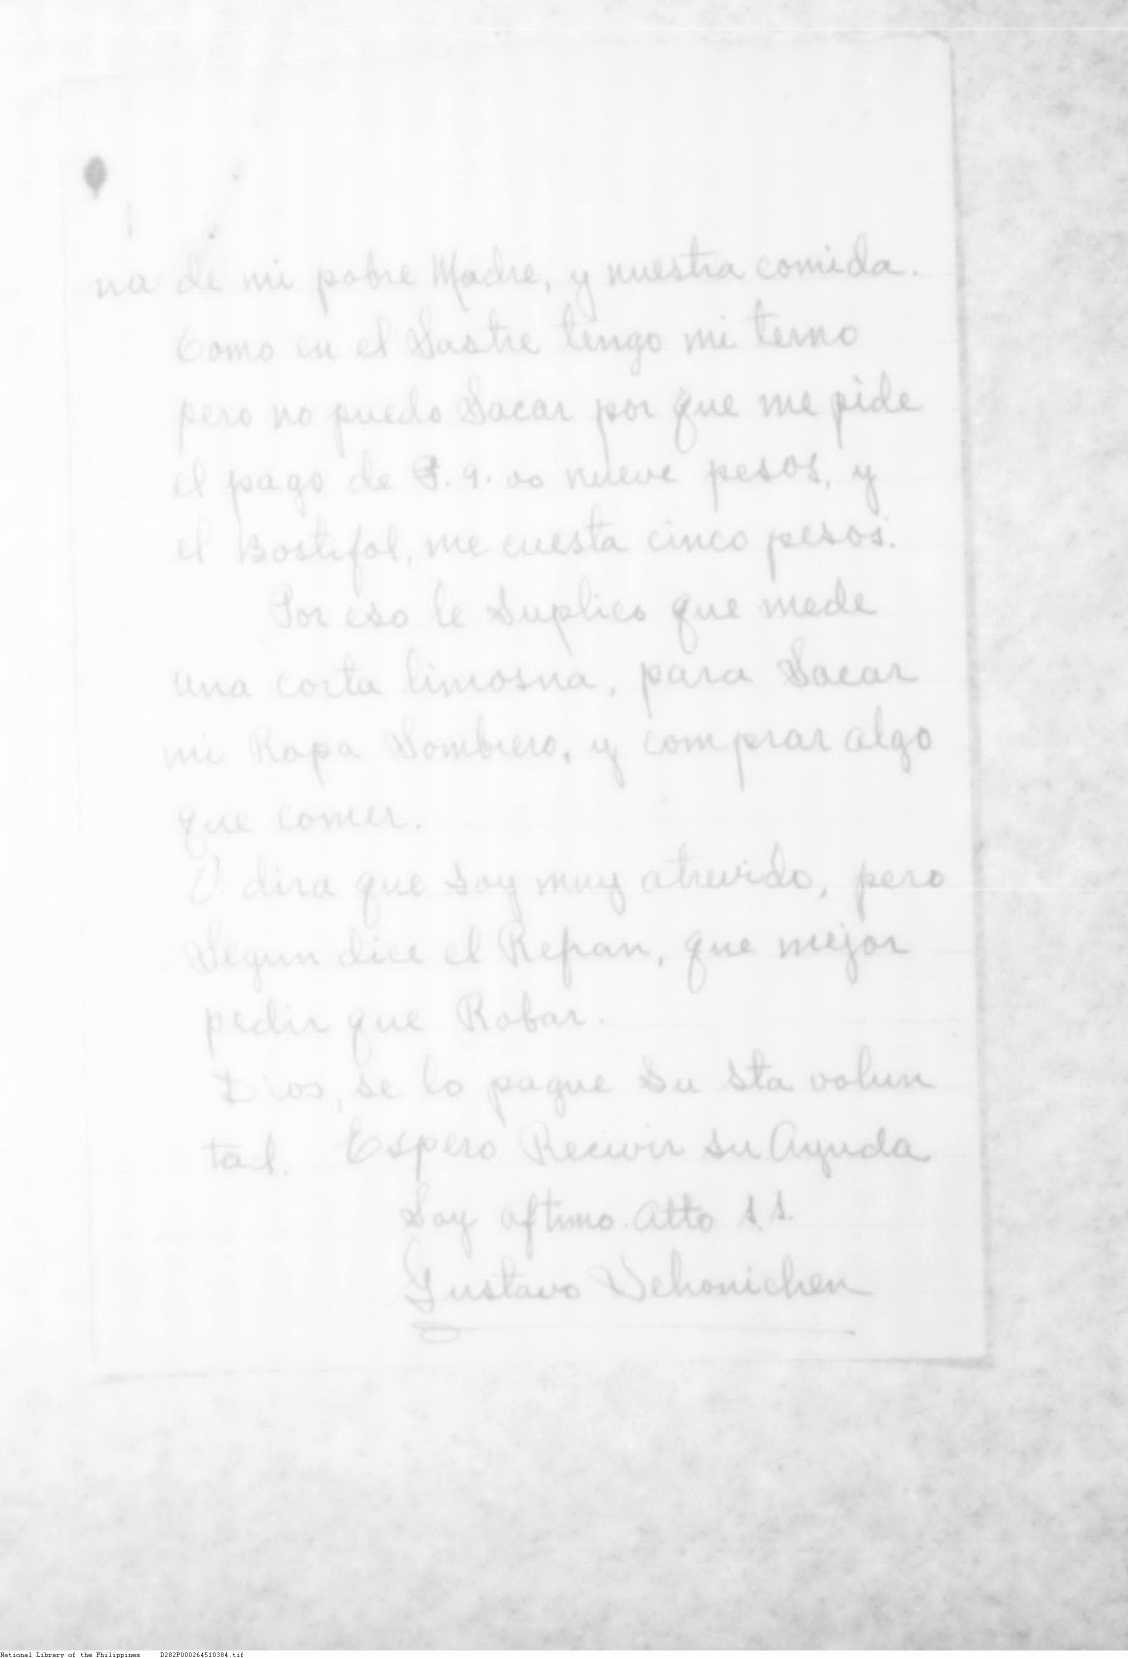 na de mi pobre Madre, y nuestra comida.
Como en el Sastre tengo mi terno
pero no puedo Sacar por que me pide
el pago de P. 9.00 nueve pesos, y
el Bostifol, me cuesta cinco pesos.
Por eso le Suplico que mede
una corta limosna, para Sacar
mi Ropa Sombrero, y comprar algo
que comer.
V dira que soy muy atrevido, pero
Segun dice el Refran, que mejor
pedir que Robar.
Dios, se lo pague su sta volun
tad. Espero Recivir su Ayuda
Soy aftimo atto s s.
Gustavo
National Library of the Philippines D282P000264510384.tif